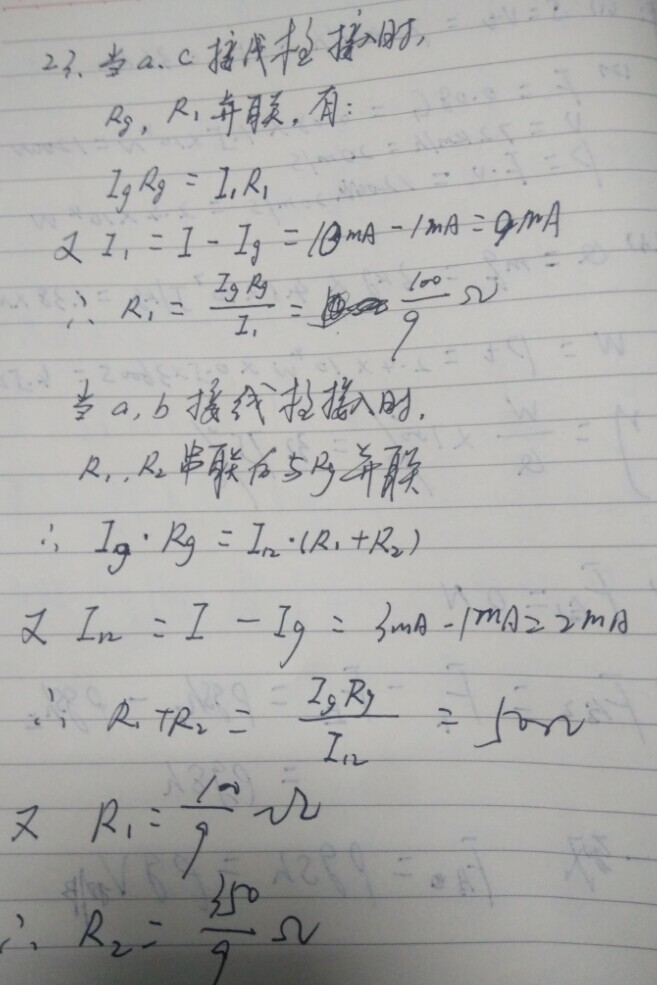 23. 当a.c接线柱接入时,
Rg, R₁并联, 有:
IgRg = I₁R₁
又 I₁ = I - Ig = 10mA - 1mA = 9mA
∴ R₁ = IgRg/I₁ = 100/9 Ω
当a,b接线柱接入时.
R₁, R₂串联后与Rg并联
∴ Ig·Rg = I₁₂·(R₁+R₂)
又 I₁₂ = I - Ig = 3mA - 1mA = 2mA
∴ R₁+R₂ = IgRg/I₁₂ = 50Ω
又 R₁ = 100/9 Ω
∴ R₂ = 350/9 Ω